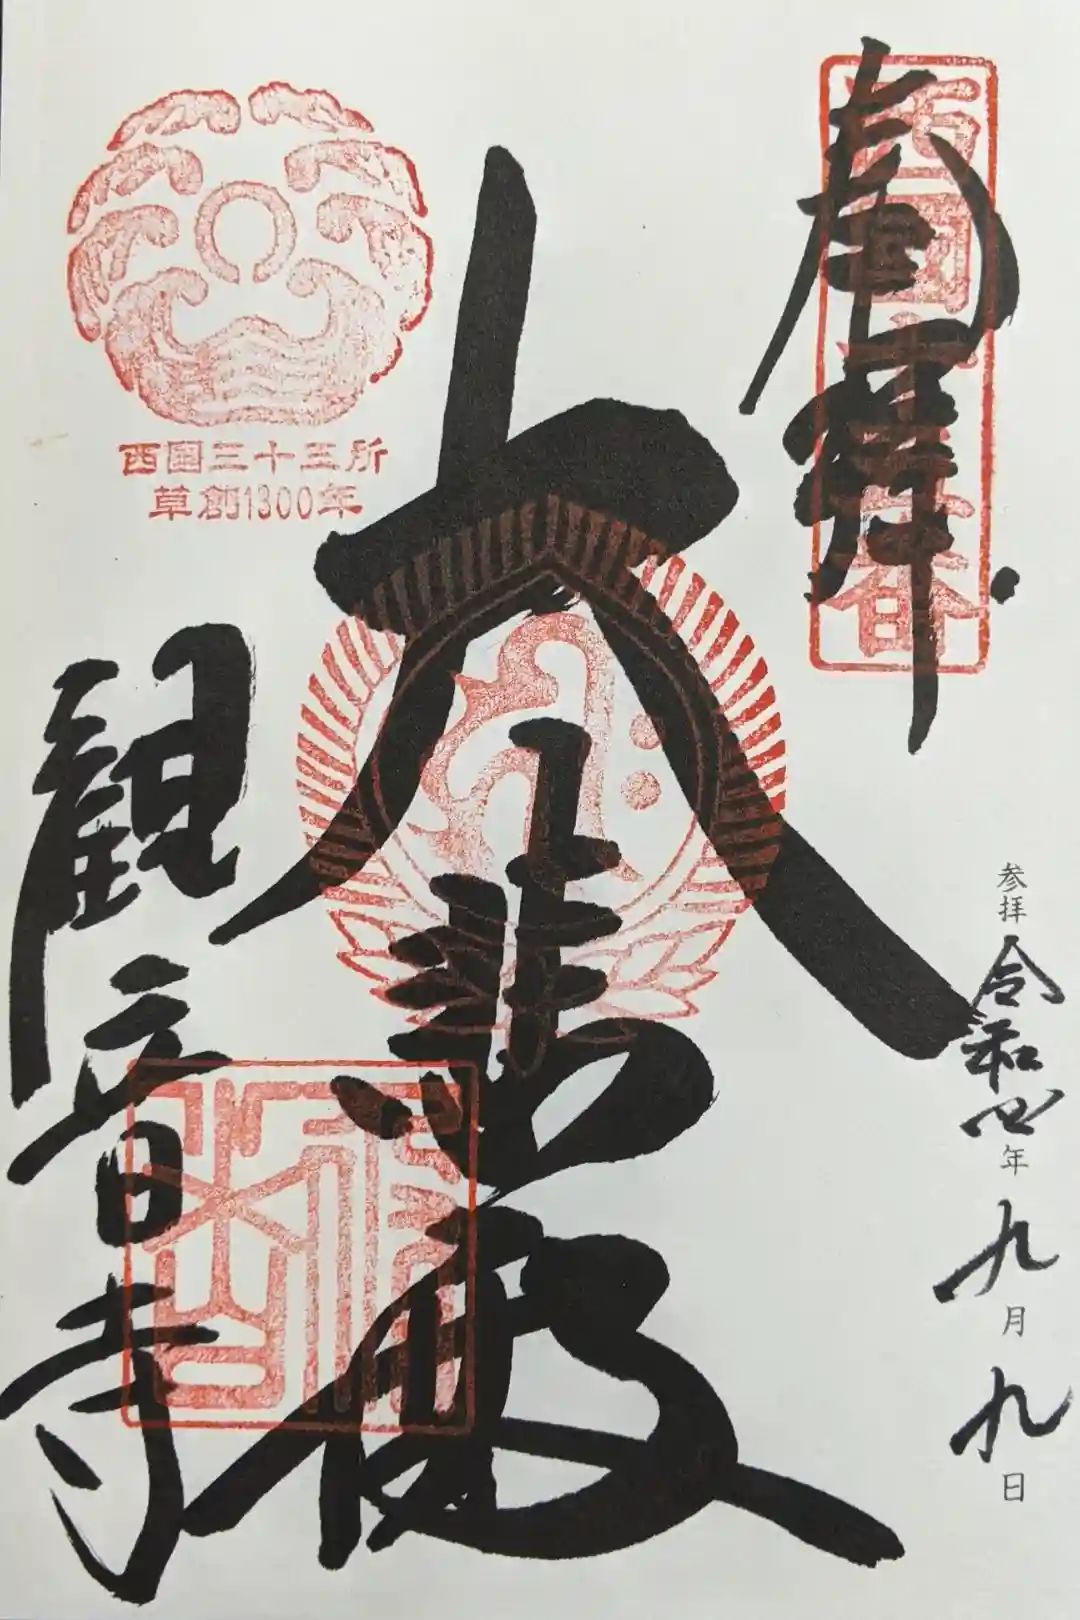 奉拝
西国十五番
参拝 令和四年九月九日
大悲殿
西国三十三所
草創1300年
観音寺